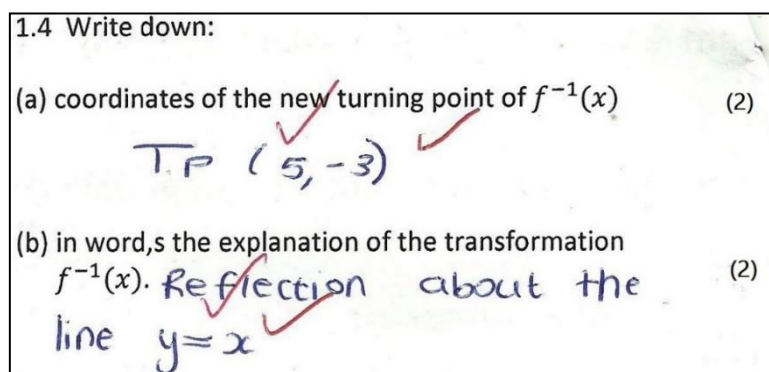 1.4 Write down:
(a) coordinates of the new turning point of f⁻¹(x) (2)
T.P (5,-3)
(b) in word,s the explanation of the transformation
f⁻¹(x). Reflection about the (2)
line y=x